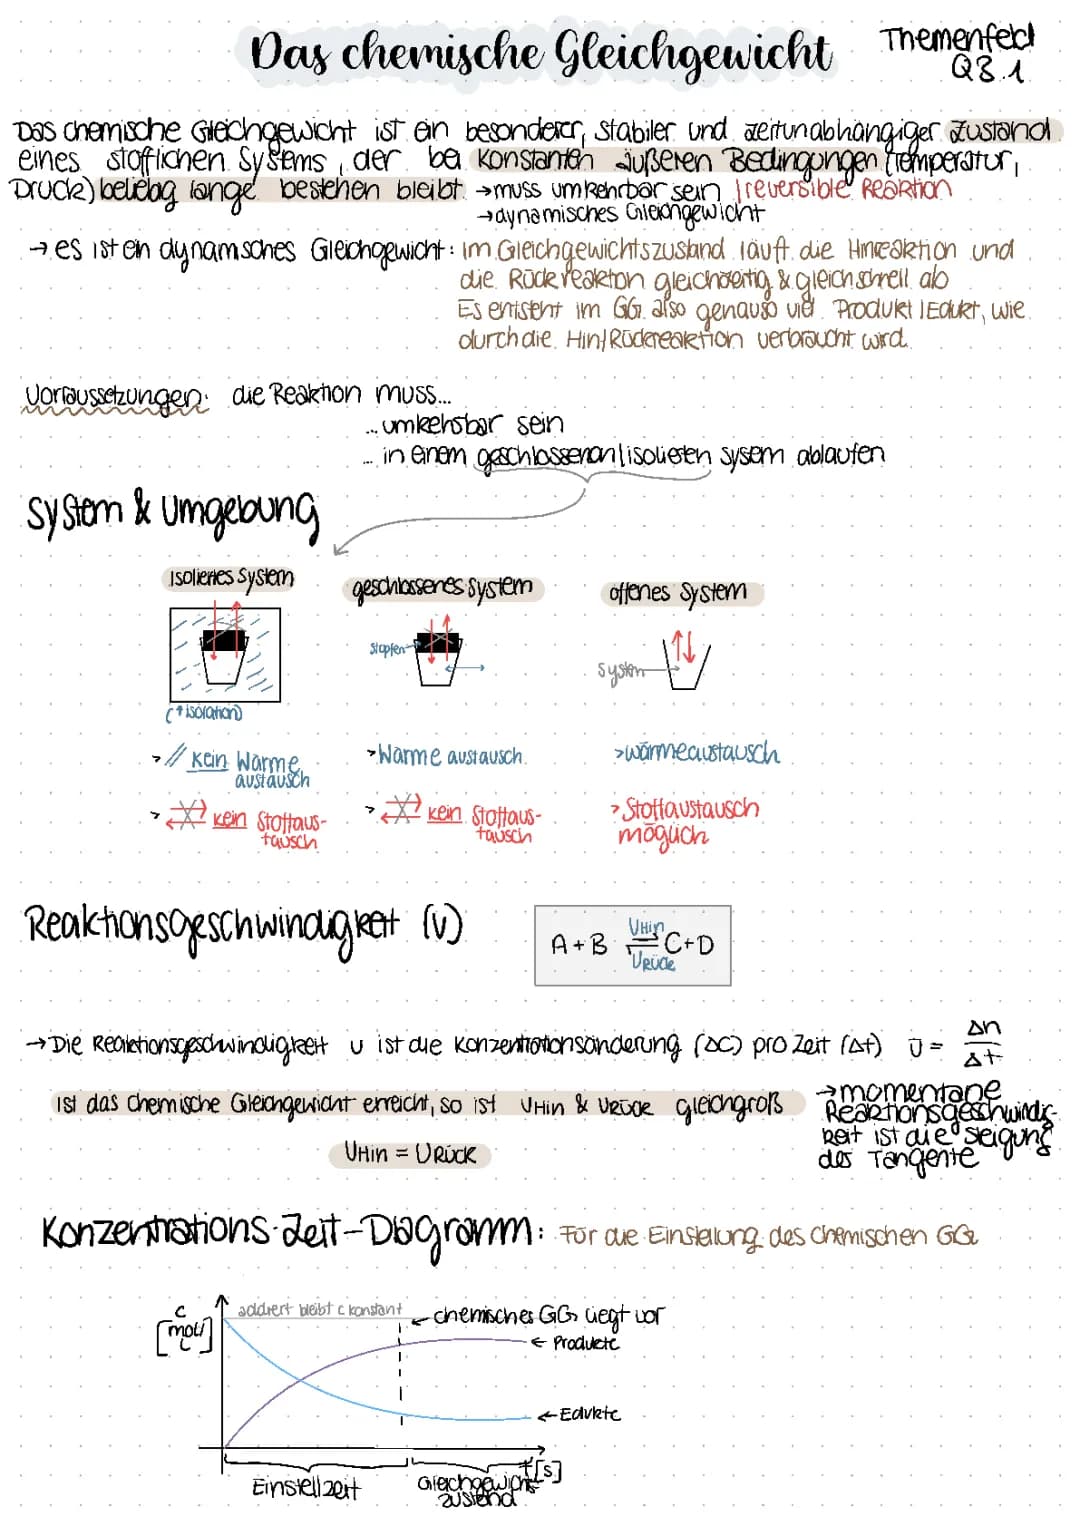 Das chemische Gleichgewicht
Themenfeld
Q3.1
Das chemische Gleichgewicht ist ein besonderer, stabiler und zeitunabhängiger Zustand
eines stofflichen Systems, der bei konstanten äußeren Bedingungen (Temperatur,
Druck) beliebig lange bestehen bleibt. →muss umkehrbar sein | reversible Reaktion
→dynamisches Gleichgewicht
→ es ist ein dynamsches Gleichgewicht: im Gleichgewichtszustand läuft die Hinreaktion und
die Rückreaktion gleichzeitig & gleichschnell ab
Es entsteht im GG. also genauso viel Produkt | Edukt, wie
durch die Hin/Rückreaktion verbraucht wird.
Vorraussetzungen: die Reaktion muss...
... umkehrbar sein
... in einem geschlossenen | isolierten System ablaufen
System & Umgebung
isoliertes System
geschlossenes System
offenes System
Stopfen
System
(↑ isolation)
> // kein Wärme
austausch
>Wärme austausch
>wärmeaustausch
> kein Stoffaus-
tausch
> kein Stoffaus-
tausch
> Stoffaustausch
möglich
Reaktionsgeschwindigkeit (v)
A + B ⇌ C+D
VHin
VRück
→Die Reaktionsgeschwindigkeit v ist die Konzentrationsänderung (ΔC) pro Zeit (Δt) v̄ = Δn/Δt
Ist das chemische Gleichgewicht erreicht, so ist VHin & VRück gleichgroß
VHin = VRÜCK
→momentane
Reaktionsgeschwindig-
keit ist die Steigung
der Tangente
Konzentrations-Zeit-Diagramm: Für die Einstellung des chemischen GGs
c
[mol/L]
addiert bleibt c konstant
← chemisches GG liegt vor
← Produkte
← Edukte
t[s]
Einstellzeit
Gleichgewichts-
zustand